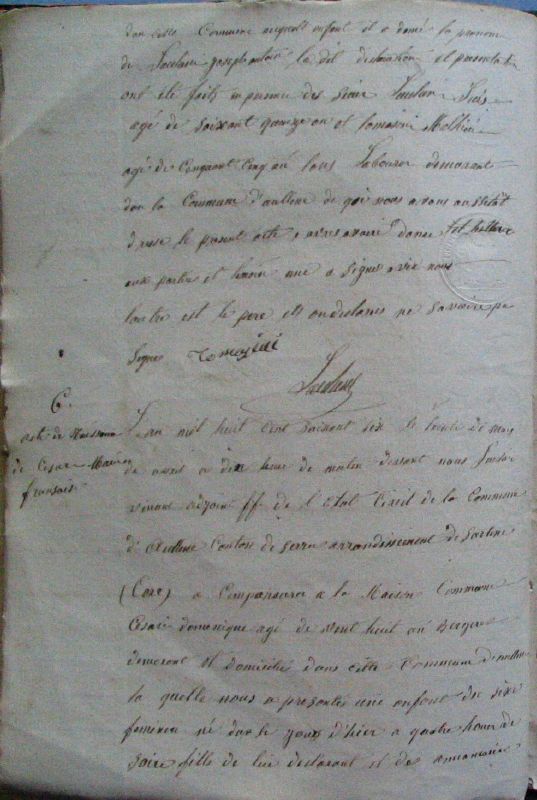 dan cette Commune auquell enfant il a doné la prenom
de Joseph antoine la dit declaration et presentation
ont été faits en presence des sieur
agé de soixant quinze an et tomasini Mathieu
agé de Cinquant Cinq an tous Laboureur demeurant
dan la Commune d'aullene de qoi nous avons au
drese le present acte, avres avoire donné
aux partis et temoin une a signé avec nous
lautre est le pere ont declares ne savoire pa
Signe Tomasini
6.
acte de Naissance
de Cesari Maria
fransais
L'an mil huit Cent soixant dix le trente de
a dix heur de matin devant nous
adjoint ff. de l'etat Civil de la Commune
d'Aullene Canton de Serra arrondissement de Sartene
(Corse) a Comparu a la Maison Commune
Cesari domenique agé de vent huit an Berger
demeurant et domicilié dans cette Commune d'aullene
la quelle nous a presentée une enfant du sixe
feminin né dan le jour d'hier a quatre heur de
soire fille de lui declarant et de